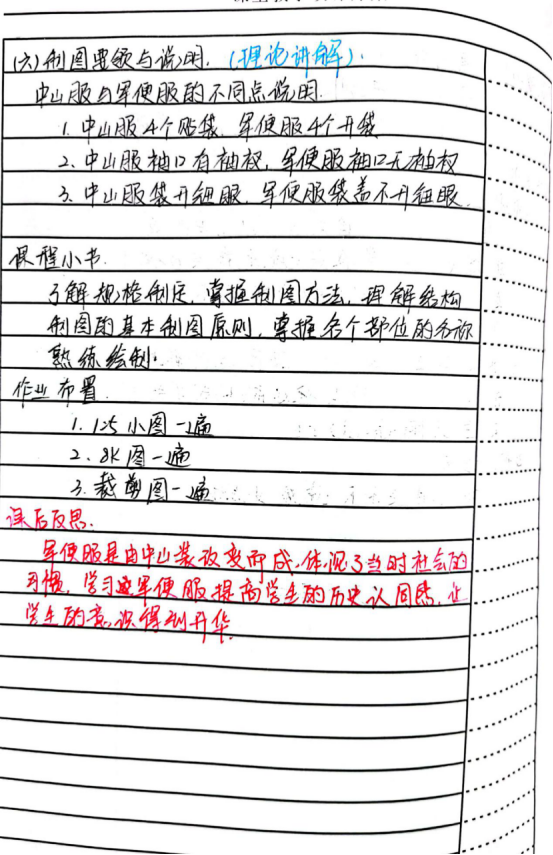 (六)制图要领与说明.(理论讲解).
中山服与军便服的不同点说明.
1. 中山服4个贴袋. 军便服4个开袋
2. 中山服袖口有袖衩, 军便服袖口无袖衩
3. 中山服袋开纽眼. 军便服袋盖不开纽眼
课程小书.
了解规格制定, 掌握制图方法, 理解结构
制图的基本制图原则, 掌握各个部位的名称
熟练绘制.
作业布置.
1. 1:5小图一遍
2. 8K图一遍
3. 裁剪图一遍
课后反思.
军便服是由中山装改变而成. 体现了当时社会的
习惯, 学习军便服提高学生的历史认同感, 让
学生的意识得到升华.